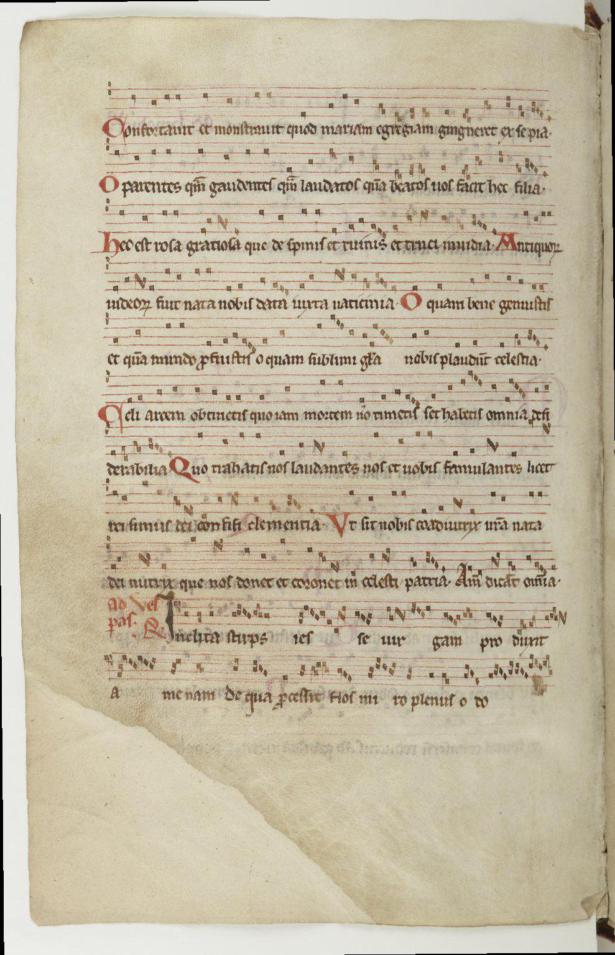 Confortauit et monstrauit quod mariam egregiam gingneret ex se pia.
O parentes qm̄ gaudentes qm̄ laudatos qua beatos uos facit hec filia.
Hec est rosa gratiosa que de spinis et ruinis et truci inuidia. Antiquoꝝ
iudeoꝝ fuit nata nobis data iuxta uaticinia. O quam bene genuistis
et qua mundo ꝓfuistis o quam sublimi gl̄a nobis plaudūt celestia.
Celi arcem obtinetis quo iam mortem nō timetis set habetis omnia desi
derabilia. Quo trahatis nos laudantes uos et uobis famulantes licet
rei simus dei confisi clementia. Ut sit nobis coadiutrix ur̄a nata
dei nutrix que nos donet et coronet in celesti patria. Am̄ dicāt omīa.
ad Ves
pas. R Inclita stirps ies se uir gam pro duxit
a me nam de qua ꝓcessit flos mi ro plenus o do